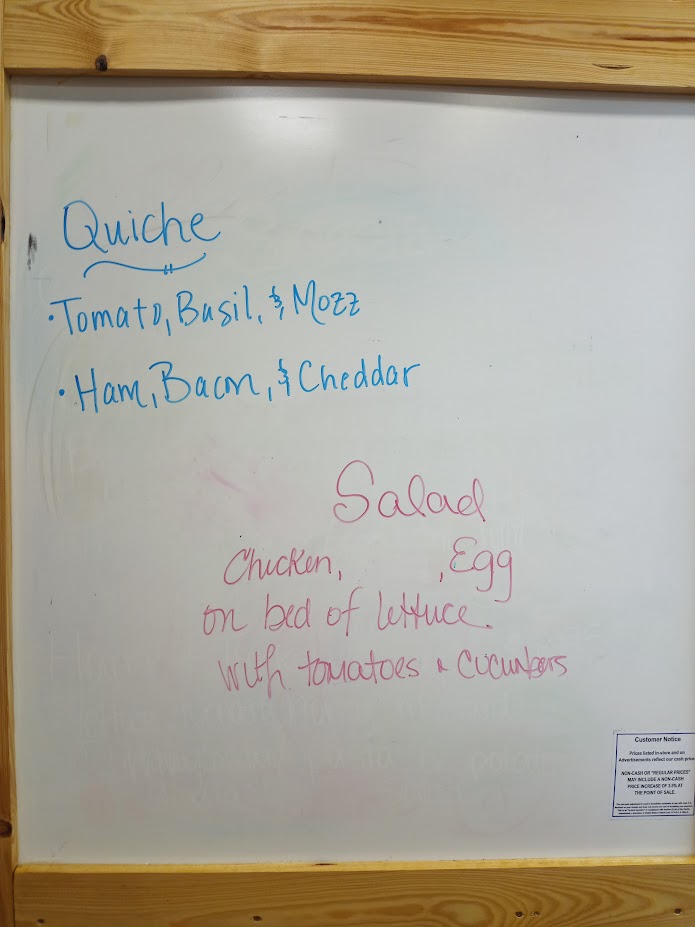 Quiche
• Tomato, Basil, & Mozz
• Ham, Bacon, & Cheddar
Salad
Chicken, , Egg
on bed of lettuce.
with tomatoes & cucumbers
Customer Notice
Prices listed in-store and on
Advertisements reflect our cash price
NON-CASH OR "REGULAR PRICES"
MAY INCLUDE A NON-CASH
PRICE INCREASE OF 3.5% AT
THE POINT OF SALE.